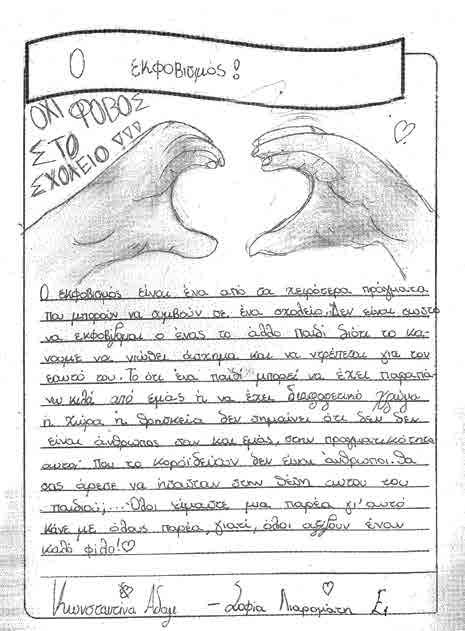 Ο εκφοβισμός!
ΟΧΙ ΦΟΒΟΣ
ΣΤΟ
ΣΧΟΛΕΙΟ!!!
Ο εκφοβισμός είναι ένα από τα χειρότερα πράγματα
που μπορούν να συμβούν σε ένα σχολείο. Δεν είναι σωστό
να εκφοβίζομαι ο ένας το άλλο παιδί διότι το κά-
νουμε να νιώθει άσχημα και να ντρέπεται για τον
εαυτό του. Το ότι ένα παιδί μπορεί να έχει παραπά-
νω κιλά από εμάς ή να έχει διαφορετικό χρώμα
ή χώρα ή θρησκεία δεν σημαίνει ότι δεν δεν
είναι άνθρωπος σαν και εμάς, στην πραγματικότητα
αυτοί που το κοροϊδεύαν δεν είναι άνθρωποι. Θα
σας άρεσε να ήσασταν στην θέση αυτού του
παιδιού;... Όλοι είμαστε μια παρέα γι' αυτό
κάνε με όλους παρέα, γιατί, όλοι αξίζουν έναν
καλό φίλο!
Κωνσταντίνα - Σοφία Ε1